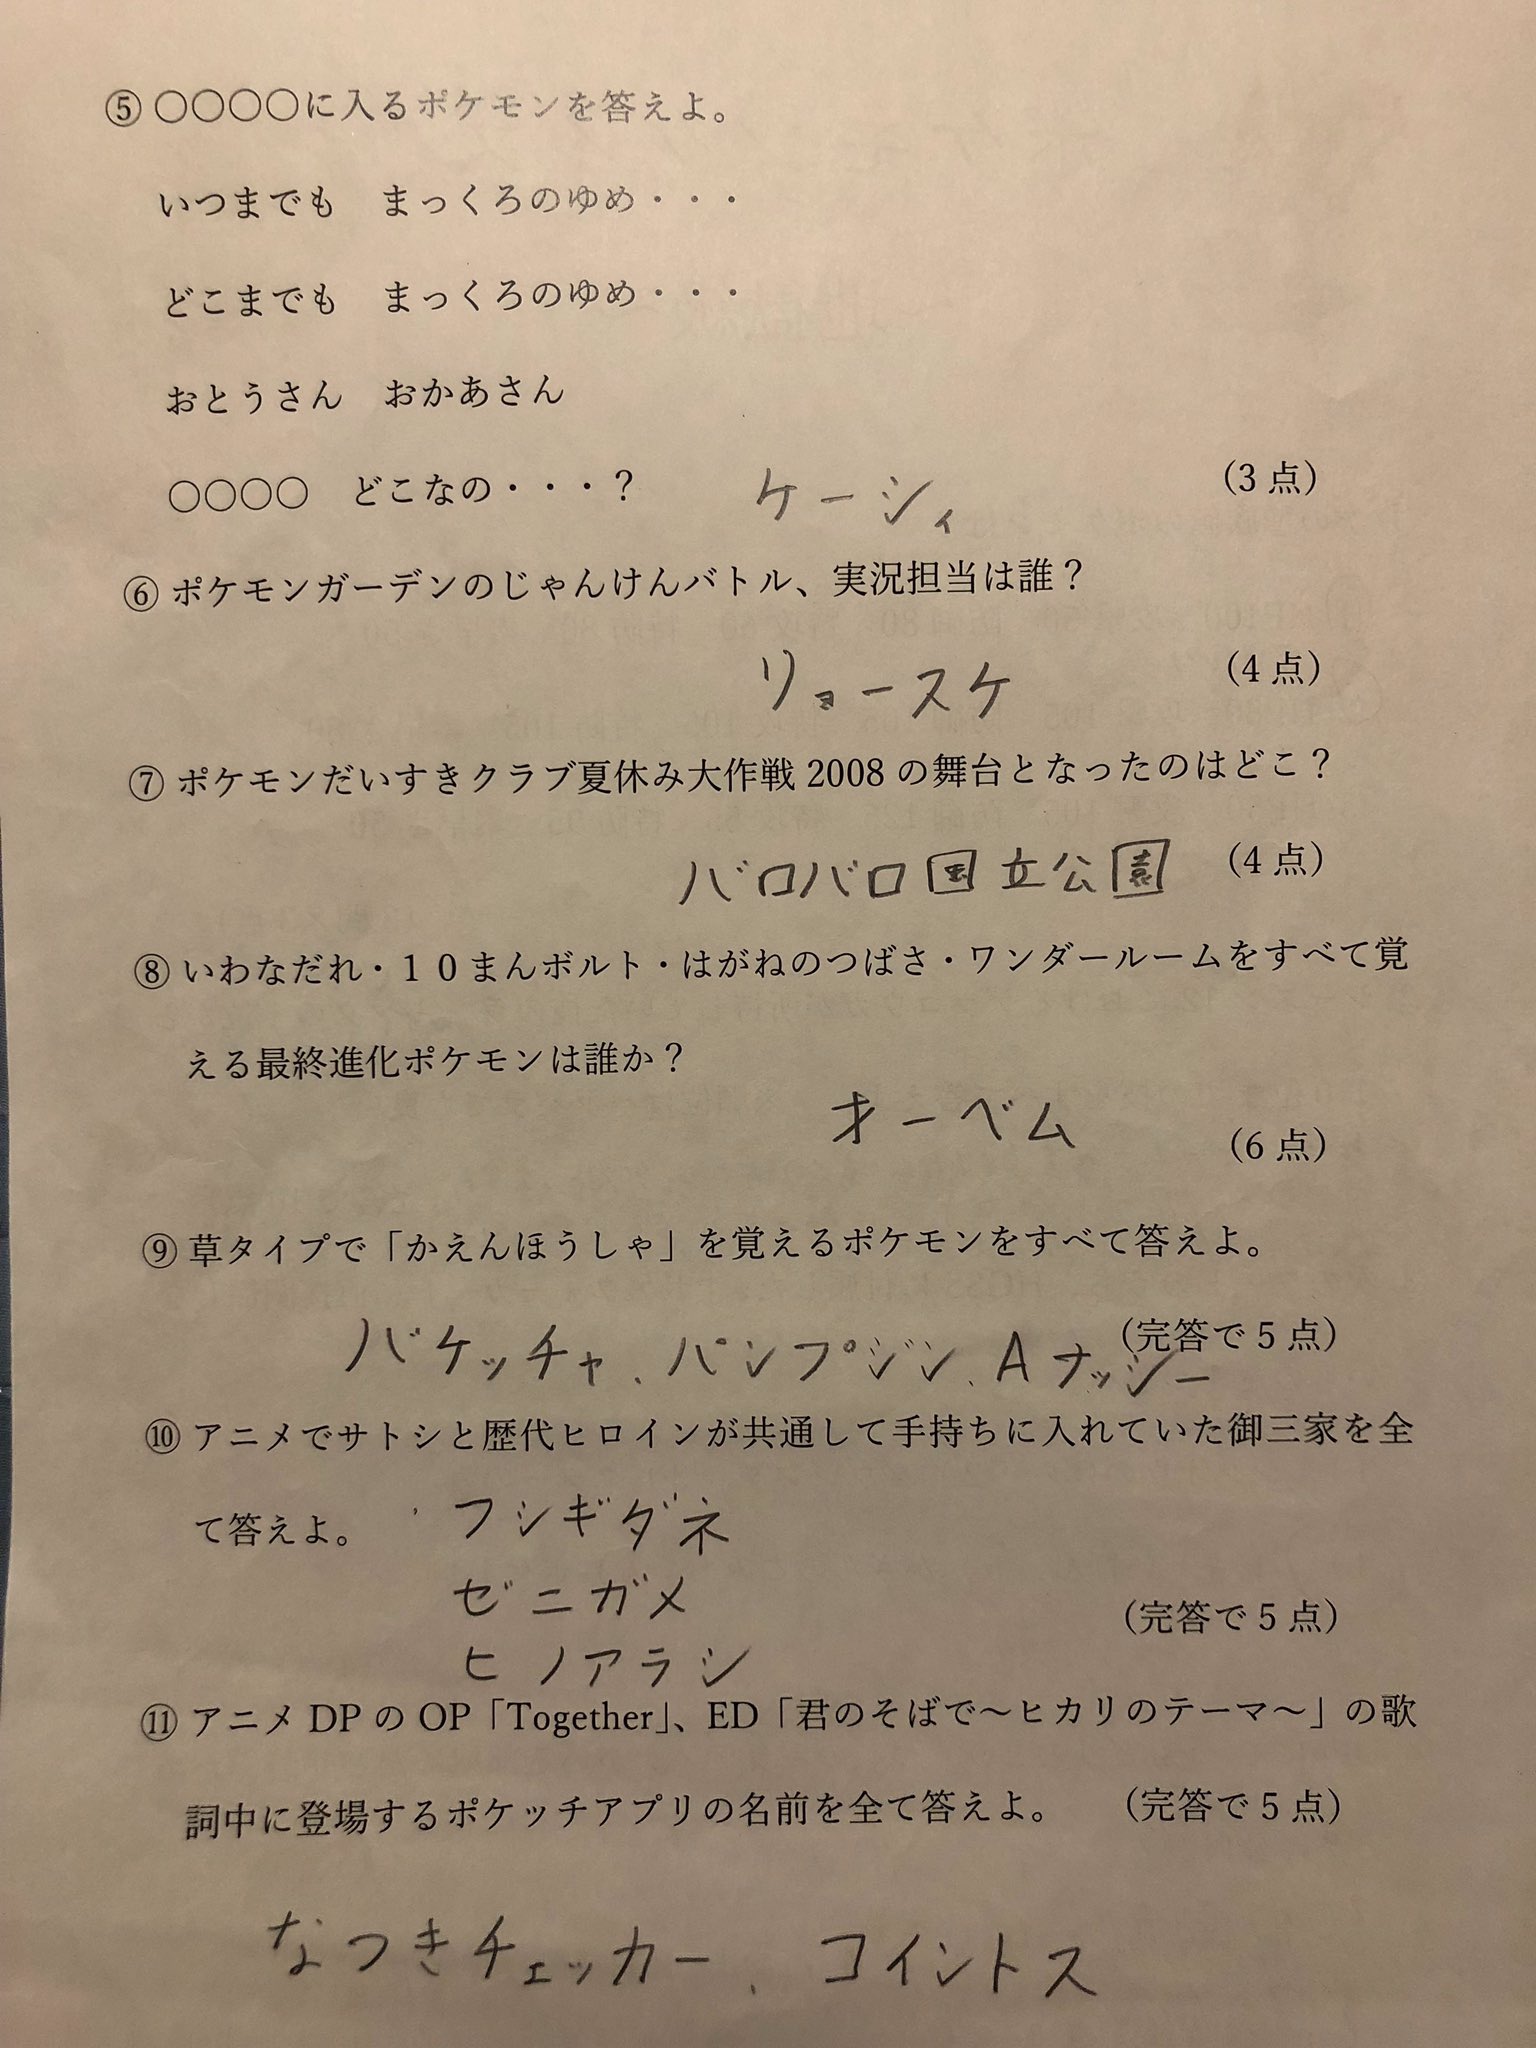 ⑤ 〇〇〇〇に入るポケモンを答えよ。
いつまでも　まっくろのゆめ・・・
どこまでも　まっくろのゆめ・・・
おとうさん　おかあさん
〇〇〇〇　どこなの・・・？　ケーシィ　（3 点）
⑥ ポケモンガーデンのじゃんけんバトル、実況担当は誰？
リョースケ　（4 点）
⑦ ポケモンだいすきクラブ夏休み大作戦 2008 の舞台となったのはどこ？
バロバロ国立公園　（4 点）
⑧ いわなだれ・１０まんボルト・はがねのつばさ・ワンダールームをすべて覚
える最終進化ポケモンは誰か？
オーベム　（6 点）
⑨ 草タイプで「かえんほうしゃ」を覚えるポケモンをすべて答えよ。
（完答で 5 点）
バケッチャ、パンプジン、Aナッシー
⑩ アニメでサトシと歴代ヒロインが共通して手持ちに入れていた御三家を全
て答えよ。　フシギダネ
ゼニガメ　（完答で 5 点）
ヒノアラシ
⑪ アニメ DP の OP「Together」、ED「君のそばで～ヒカリのテーマ～」の歌
詞中に登場するポケッチアプリの名前を全て答えよ。　（完答で 5 点）
なつきチェッカー、コイントス